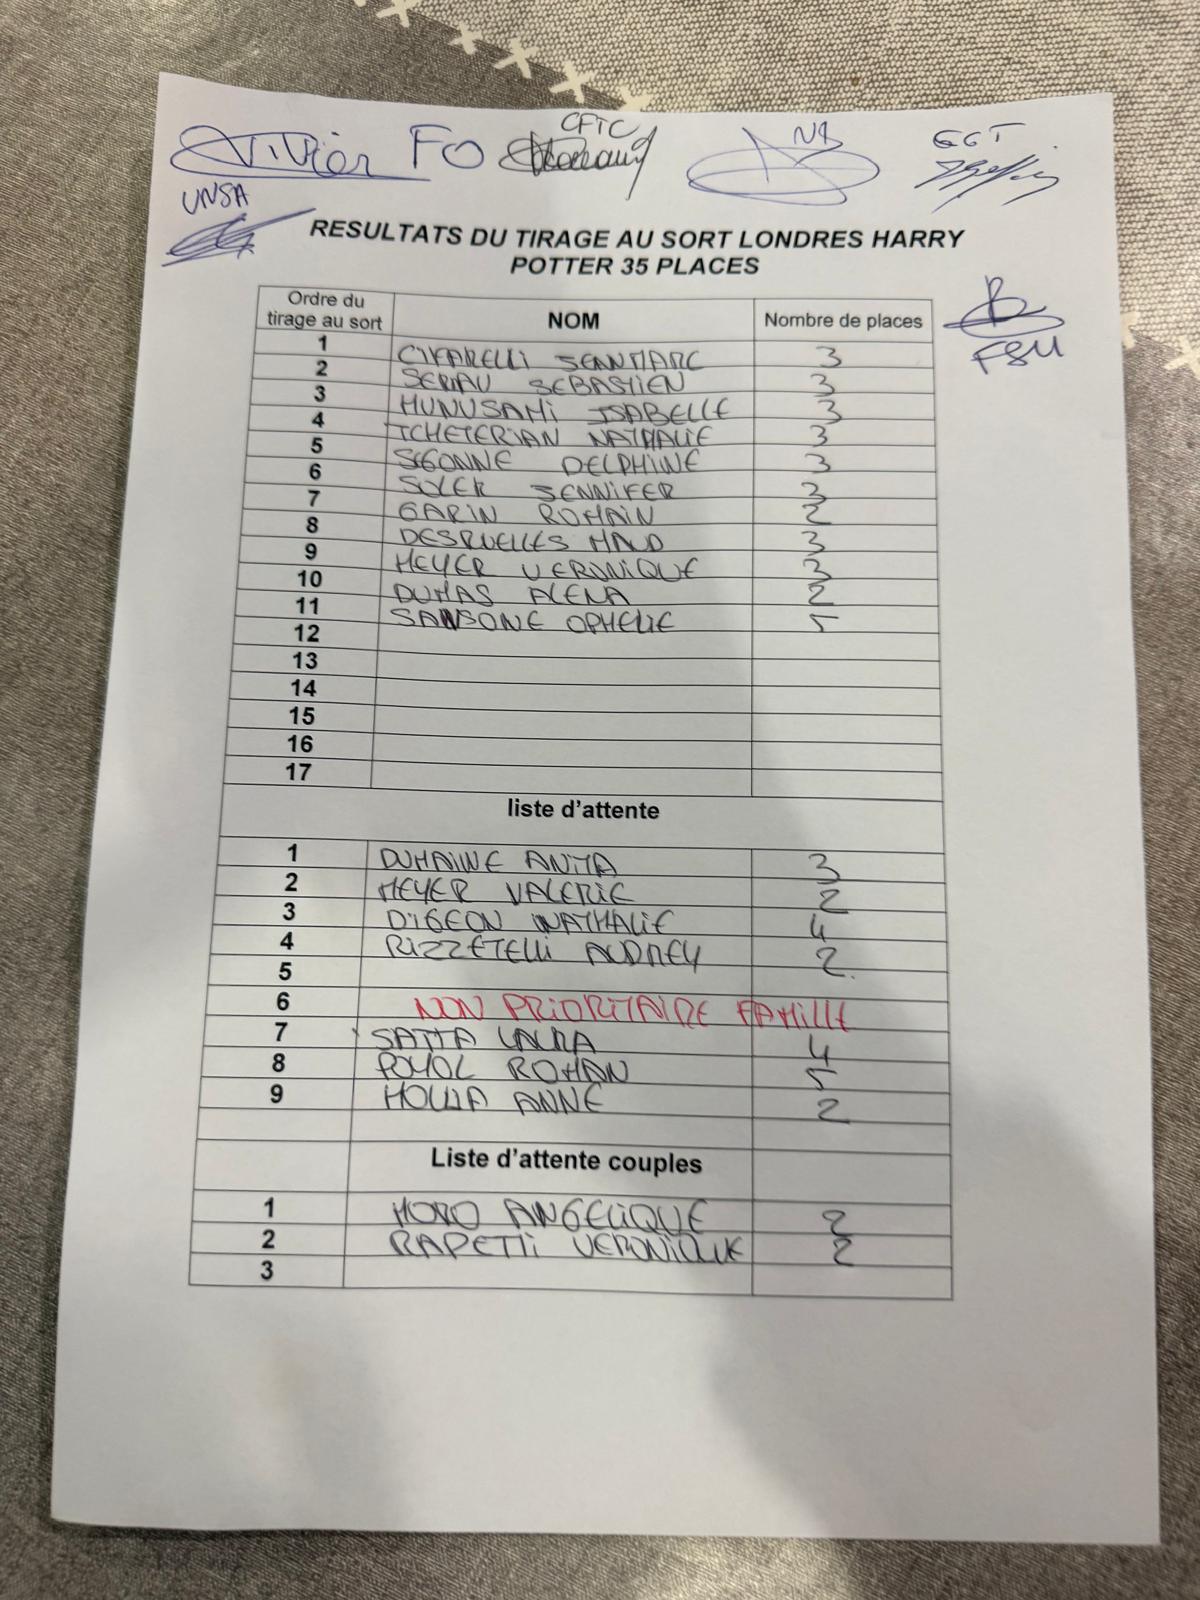 Olivier FO CFTC NB CGT
UNSA
RESULTATS DU TIRAGE AU SORT LONDRES HARRY
POTTER 35 PLACES
FSU
Ordre du tirage au sort NOM Nombre de places
1 CIFARELLI JEANMARC 3
2 SERIAU SEBASTIEN 3
3 MUNUSAMI ISABELLE 3
4 TCHETERIAN NATHALIE 3
5 SEGONNE DELPHINE 3
6 SOLER JENNIFER 3
7 GARIN ROMAIN 2
8 DESRUELLES MAUD 3
9 MEYER VERONIQUE 3
10 DUMAS ALENA 2
11 SANSONE OPHELIE 5
12
13
14
15
16
17
liste d'attente
1 DUHAINE ANITA 3
2 MEYER VALERIE 2
3 DIGEON NATHALIE 4
4 RIZZETELLI AUDREY 2.
5
6 NON PRIORITAIRE FAMILLE
7 SATTA LAURA 4
8 POYOL ROHAN 5
9 MOULIA ANNE 2
Liste d'attente couples
1 MORO ANGELIQUE 2
2 RAPETTI VERONIQUE 2
3